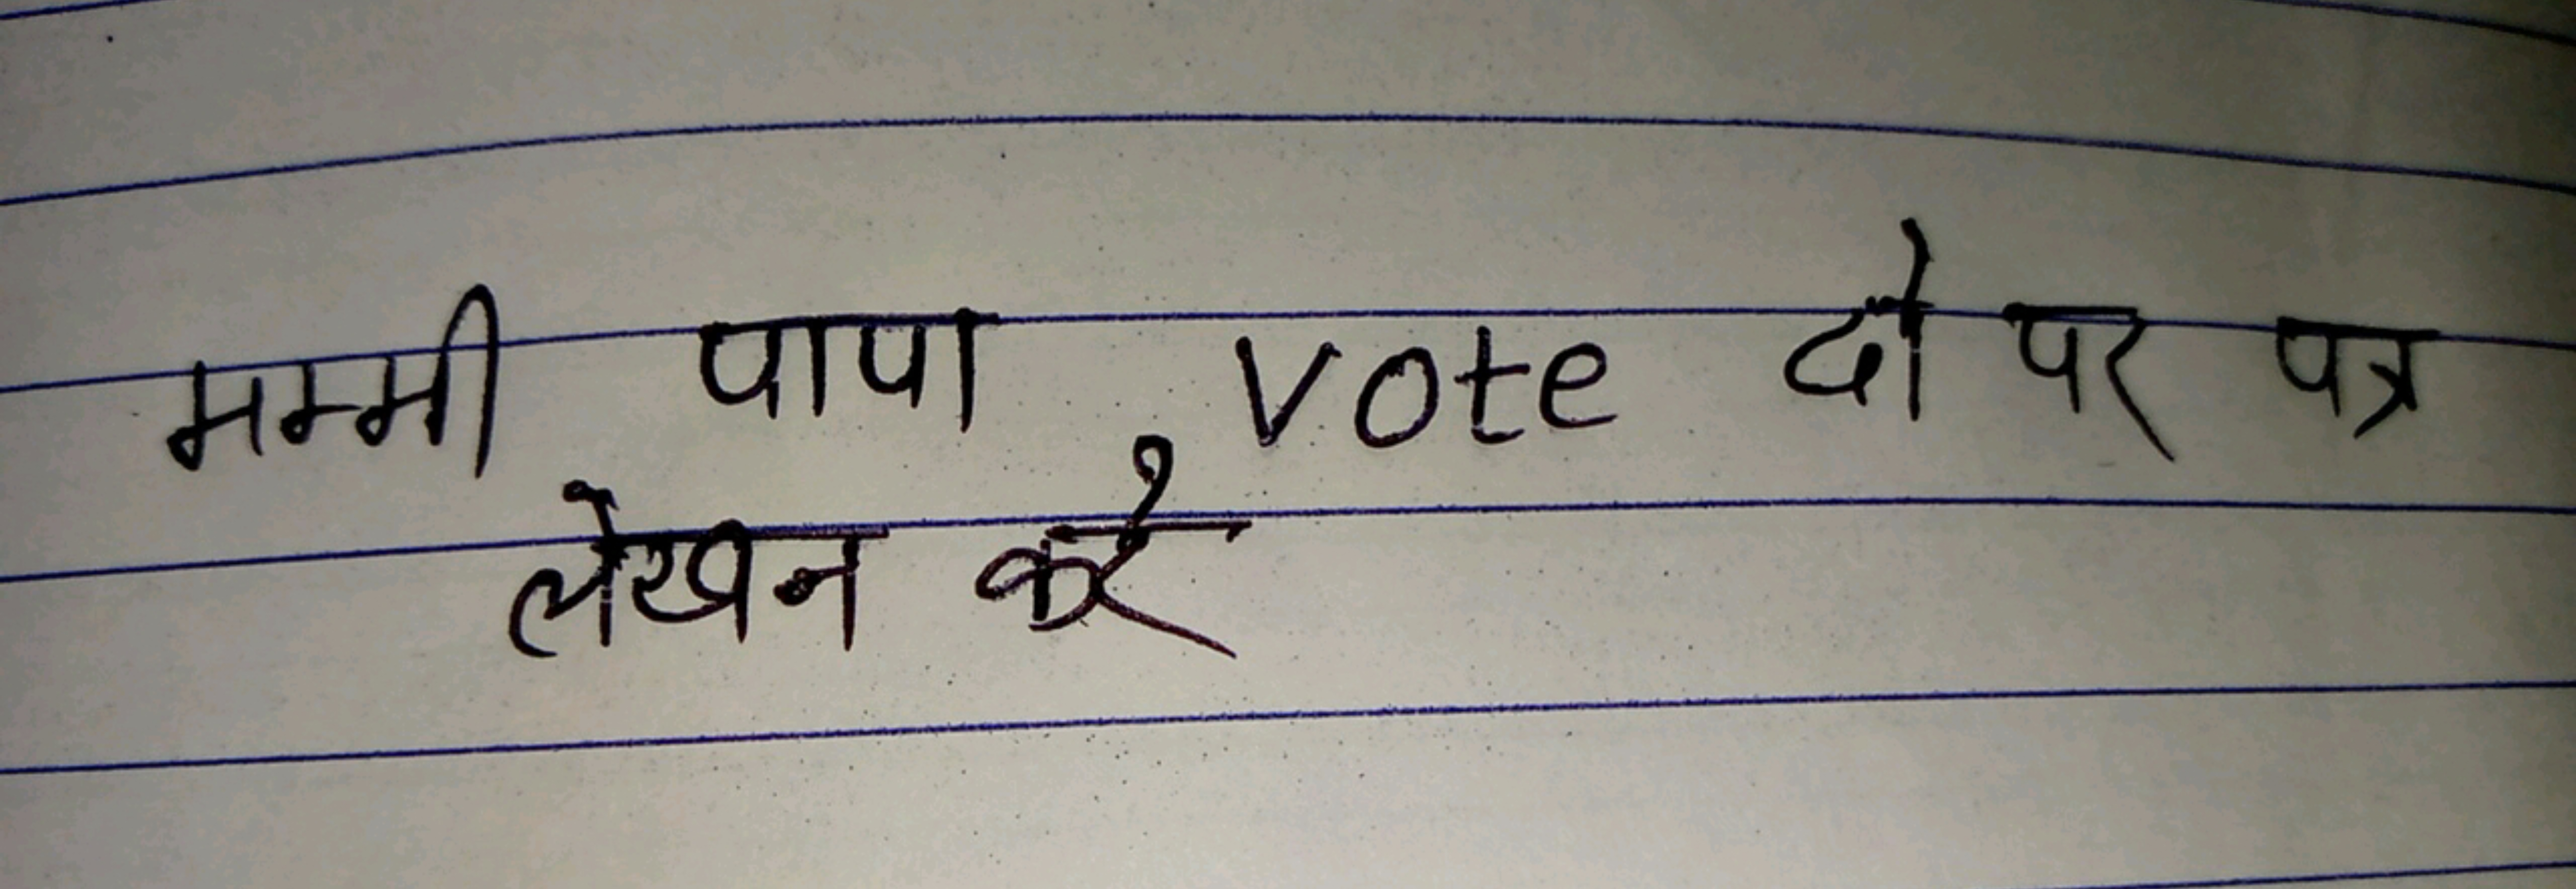 मम्मी पापा vote दो पर पत्र
लेखन करे